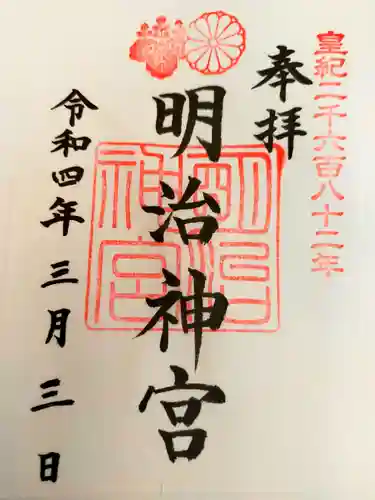 皇紀二千六百八十二年
奉拝
明治神宮
明治神宮
令和四年三月三日